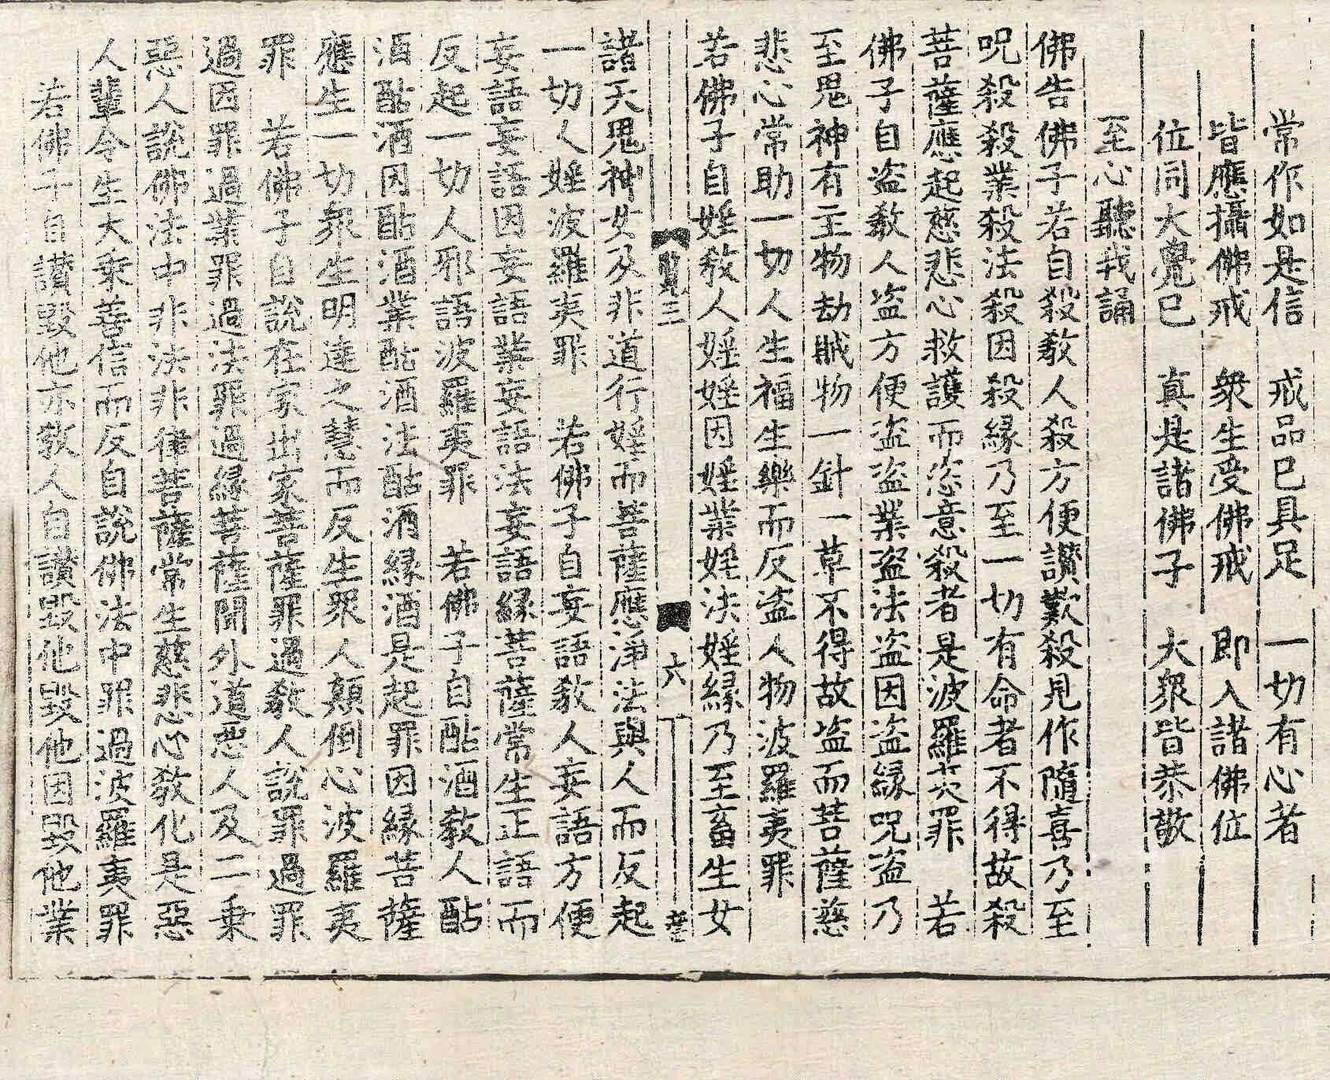 常作如是信　戒品已具足　一切有心者
皆應攝佛戒　衆生受佛戒　即入諸佛位
位同大覺已　真是諸佛子　大衆皆恭敬
至心聽我誦
佛告佛子若自殺教人殺方便讃歎殺見作隨喜乃至
呪殺殺業殺法殺因殺縁乃至一切有命者不得故殺
菩薩應起慈悲心救護而恣意殺者是波羅夷罪　若
佛子自盗教人盗方便盗盗業盗法盗因盗縁呪盗乃
至鬼神有主物劫賊物一針一草不得故盗而菩薩慈
悲心常助一切人生福生樂而反盗人物波羅夷罪
若佛子自婬教人婬婬因婬業婬法婬縁乃至畜生女
三　六
諸天鬼神女及非道行婬而菩薩應淨法與人而反起
一切人婬波羅夷罪　若佛子自妄語教人妄語方便
妄語妄語因妄語業妄語法妄語縁菩薩常生正語而
反起一切人邪語波羅夷罪　若佛子自酤酒教人酤
酒酤酒因酤酒業酤酒法酤酒縁酒是起罪因縁菩薩
應生一切衆生明達之慧而反生衆人顛倒心波羅夷
罪　若佛子自說在家出家菩薩罪過教人說罪過罪
過因罪過業罪過法罪過縁菩薩聞外道惡人及二乗
惡人說佛法中非法非律菩薩常生慈悲心教化是惡
人輩令生大乗善信而反自說佛法中罪過波羅夷罪
若佛子自讃毀他亦教人自讃毀他毀他因毀他業